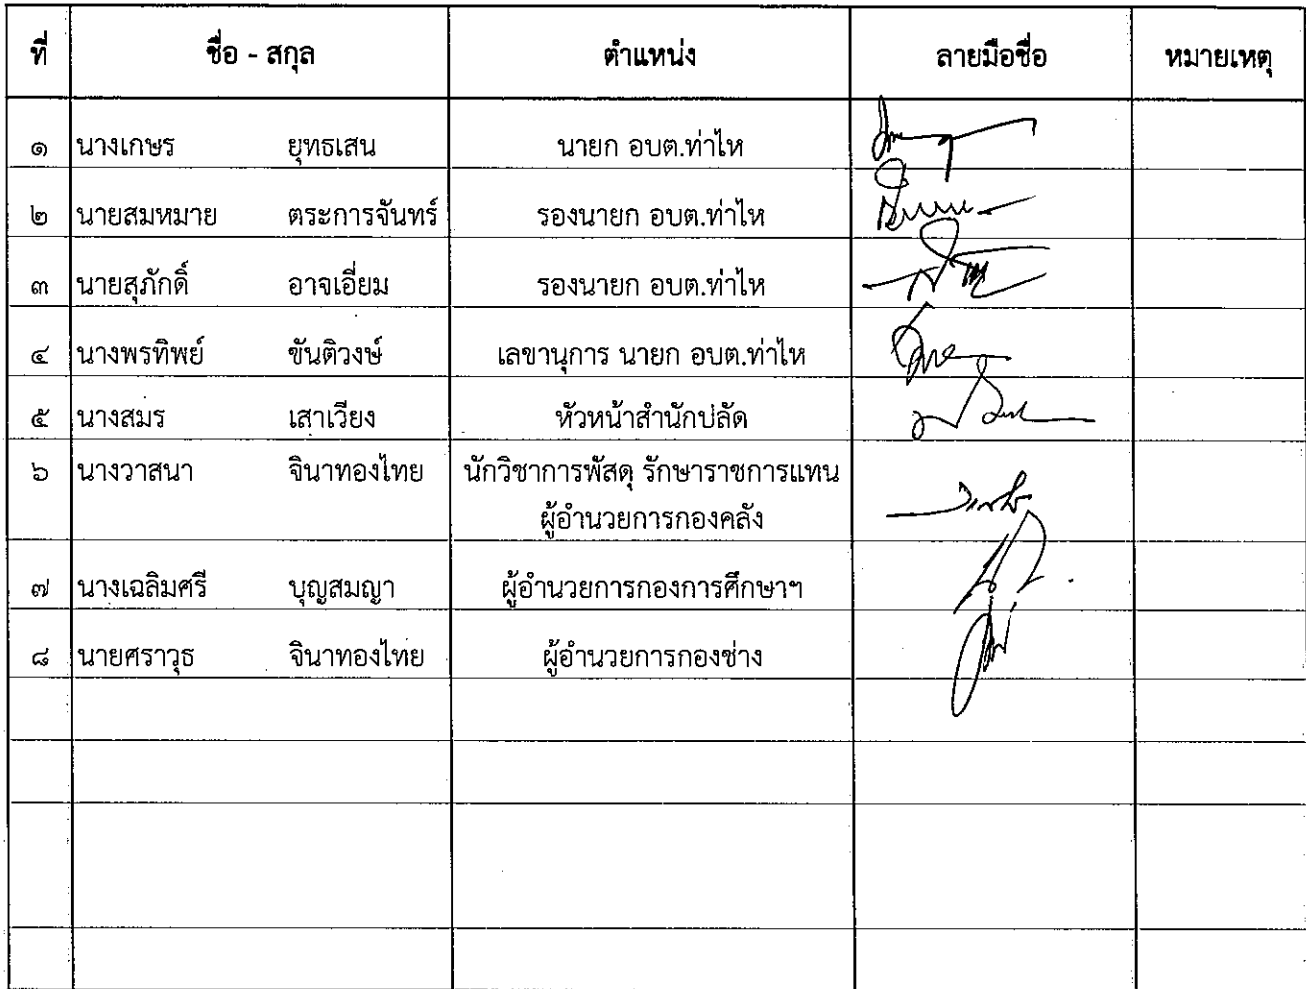 ที่ ชื่อ - สกุล ตำแหน่ง ลายมือชื่อ หมายเหตุ
๑ นางเกษร ยุทธเสน นายก อบต.ท่าไห
๒ นายสมหมาย ตระการจันทร์ รองนายก อบต.ท่าไห
๓ นายสุภักดิ์ อาจเอี่ยม รองนายก อบต.ท่าไห
๔ นางพรทิพย์ ขันติวงษ์ เลขานุการ นายก อบต.ท่าไห
๕ นางสมร เสาเวียง หัวหน้าสำนักปลัด
๖ นางวาสนา จินาทองไทย นักวิชาการพัสดุ รักษาราชการแทน
ผู้อำนวยการกองคลัง
๗ นางเฉลิมศรี บุญสมญา ผู้อำนวยการกองการศึกษาฯ
๘ นายศราวุธ จินาทองไทย ผู้อำนวยการกองช่าง